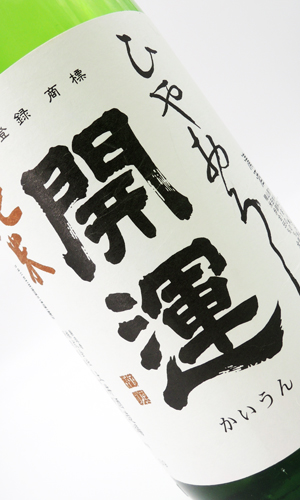 登録 商標
ひやおろし
開運
かいうん